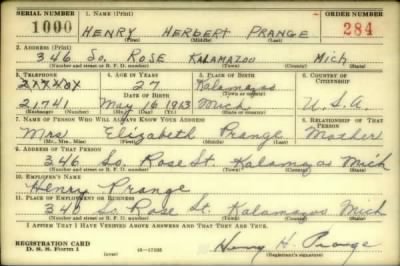 SERIAL NUMBER 1. NAME (Print) ORDER NUMBER
1000 HENRY HERBERT PRANGE 284
(First) (Middle) (Last)
2. ADDRESS (Print)
346 So. ROSE KALAMAZOO Mich
(Number and street or R. F. D. number) (Town) (County) (State)
3. TELEPHONE 4. AGE IN YEARS 5. PLACE OF BIRTH 6. COUNTRY OF CITIZENSHIP
27 Kalamazoo
DATE OF BIRTH (Town or county)
21741 May 16 1913 Mich U.S.A.
(Exchange) (Number) (Mo.) (Day) (Yr.) (State or country)
7. NAME OF PERSON WHO WILL ALWAYS KNOW YOUR ADDRESS 8. RELATIONSHIP OF THAT PERSON
Mrs Elizabeth Prange Mother
(Mr., Mrs., Miss) (First) (Middle) (Last)
9. ADDRESS OF THAT PERSON
346 So. Rose St. Kalamazoo Mich
(Number and street or R. F. D. number) (Town) (County) (State)
10. EMPLOYER'S NAME
Henry Prange
11. PLACE OF EMPLOYMENT OR BUSINESS
346 So Rose St. Kalamazoo Mich
(Number and street or R. F. D. number) (Town) (County) (State)
I AFFIRM THAT I HAVE VERIFIED ABOVE ANSWERS AND THAT THEY ARE TRUE.
REGISTRATION CARD
D. S. S. Form 1 (over) Henry H. Prange
(Registrant's signature)